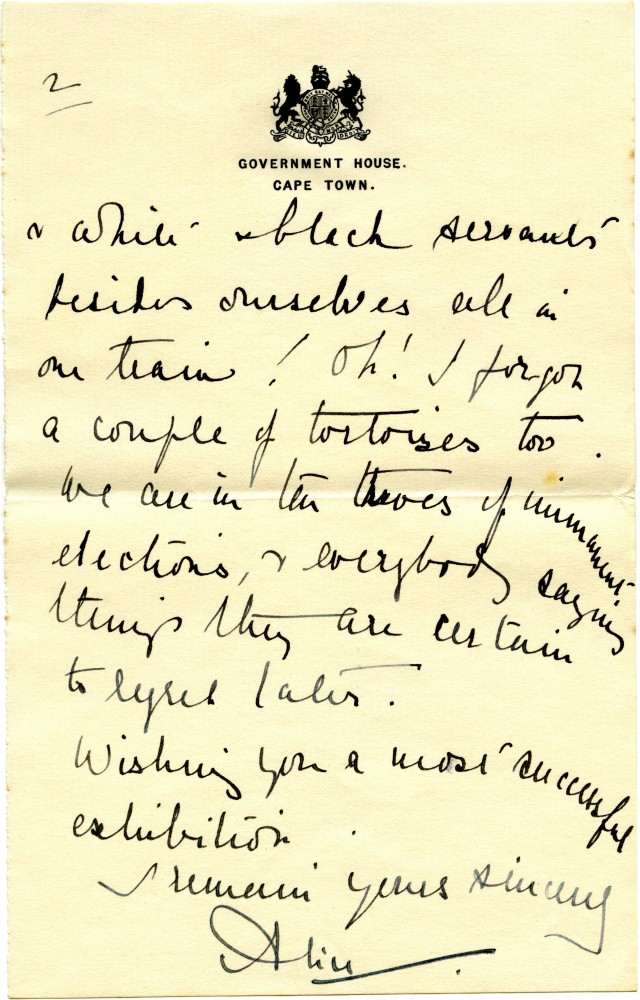 2
GOVERNMENT HOUSE.
CAPE TOWN.
& white & black servants
besides ourselves all in
one train! Oh! I forgot
a couple of tortoises too.
We are in the throes of immanent
elections, & everybody saying
things they are certain
to regret later.
Wishing you a most successful
exhibition.
I remain yours sincerely
Alice.